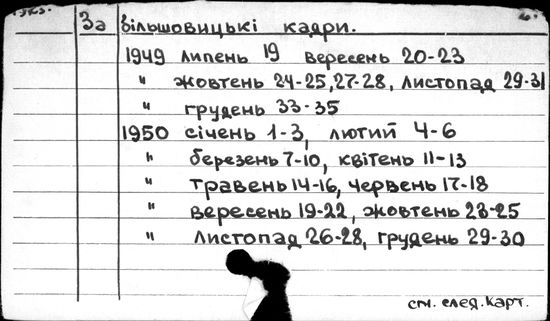 За вільшовицькі кадри.
1949 липень 19 вересень 20-23
" жовтень 24-25, 27-28, листопад 29-31
" грудень 33-35
1950 січень 1-3, лютий 4-6
" березень 7-10, квітень 11-13
" травень 14-16, червень 17-18
" вересень 19-22, жовтень 23-25
" листопад 26-28, грудень 29-30
см. след. карт.